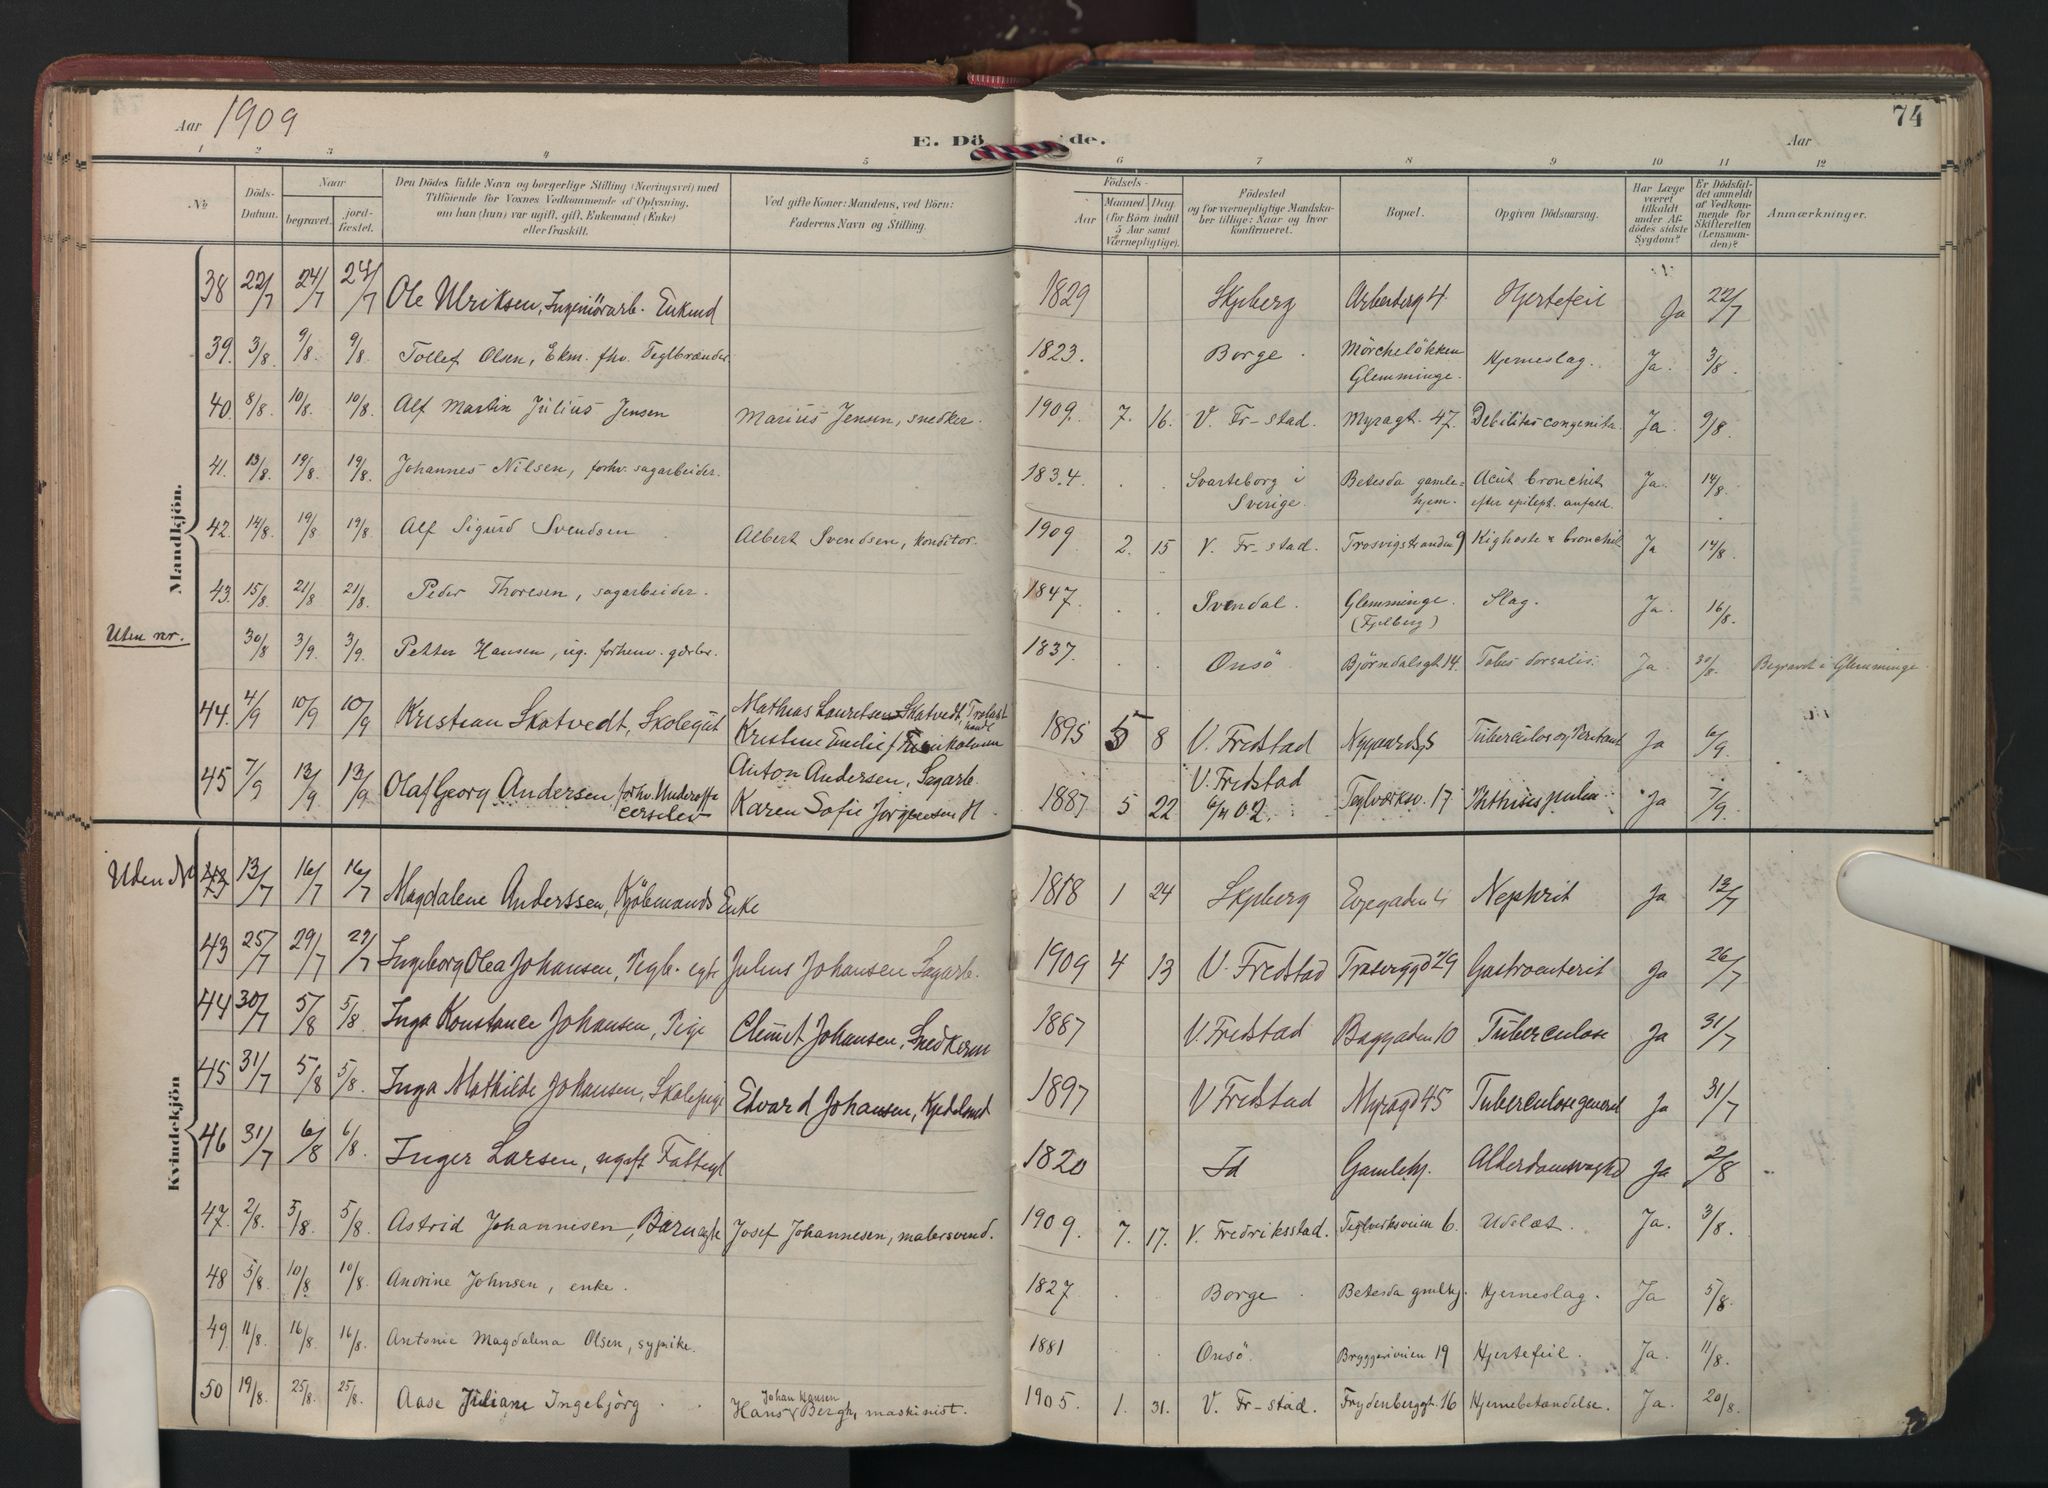 74
Aar 1909
E. Dö de.
Aar
1 2 3 4 5 6 7 8 9 10 11 12
No
Döds-Datum.
Naar
begravet.
jord-fæstet.
Den Dödes fulde Navn og borgerlige Stilling (Næringsvei) med
Tilföiende for Voxnes Vedkommende af Oplysning,
om han (hun) var ugift, gift, Enkemand (Enke)
eller fraskilt.
Ved gifte Koner: Mandens, ved Börn:
Faderens Navn og Stilling.
Födsels-
Aar
Maaned Dag
(for Börn indtil
5 Aar samt
Værnepligtige).
Födested
og for værnepligtige Mandska-
ber tillige: Naar og hvor
konfirmeret.
Bopæl.
Opgiven Dödsaarsag.
Har Læge
været
tilkaldt
under Af-
dödes sidste
Sygdom?
Er Dödsfal-
det anmeldt
af Vedkom-
mende for
Skifteretten
(Lensman-
den)?
Anmærkninger.
Mandkjön.
38 22/7 24/7 24/7 Ole Ulriksen, Ingeniörarb. Enkmd 1829 Skjeberg 4 Hjertefeil Ja 22/7
39. 3/8. 9/8. 9/8. Tollef Olsen, Ekm. fhv. Teglbrænder 1823. Borge. Mörcheløkken Glemminge. Hjerneslag. Ja. 3/8.
40. 8/8. 10/8. 10/8. Alf Martin Julius Jensen Marius Jensen, snedker. 1909. 7. 16. V. Fr-stad. Myragt. 47. Debilitas congenita. Ja. 9/8.
41. 13/8. 19/8. 19/8. Johannes Nilsen, forhv. sagarbeider. 1834. Svarteborg i Sverige. Betesda gamle-hjem. Acut bronchit efter epilept. anfald. Ja. 14/8.
42. 14/8. 19/8 19/8. Alf Sigurd Svendsen Albert Svendsen, konditor. 1909 2. 15 V. Fr-stad. Trosvigstranden 9 Kighoste & bronchit Ja 14/8.
43. 15/8. 21/8 21/8. Peder Thoresen, sagarbeider. 1847. Svendal. Glemminge. (Fjelberg) Slag. Ja. 16/8.
Uten nr. 30/8 3/9. 3/9. Petter Hansen, ug. forhenv. garber. 1837. Onsö. Björndalsgt 14. Tabes dorsalis. Ja. 30/8. Begravet i Glemminge.
44. 4/9 10/9 10/9 Kristian Skatvedt, Skolegut Mathias Lauritsen Skatvedt, Kristine Emilie 1895 5 8 V. Fredstad Nygaardsg 5 Tuberculos og Peritonit Ja 6/9.
45 7/9 13/9 13/9 Olaf Georg Andersen forhv. Underoffi cerselev Anton Andersen, Sagarb. Karen Sofie Jörgensen H 1887 5 22 V. Fredstad 02. Teglverksv. 17 Phthisis pulm. Ja 7/9.
Kvindekjön
Uden No 43 13/7 16/7 16/7 Magdalene Anderssen, Kjöbmands Enke 1818 1 24 Skjeberg Nephrit Ja 13/7
43 25/7 29/7 29/7 Ingeborg Olea Johansen, Pigb. egte Julius Johansen Sagarb. 1909 4 13 V. Fredstad 29 Gastroenterit Ja 26/7
44 30/7 5/8 5/8. Inga Konstance Johansen, Pige Clemet Johansen, Snedkerm 1887 V. Fredstad Baggaden 10 Tuberculose Ja 31/7
45 31/7 5/8 5/8. Inga Mathilde Johansen, Skolepige Edvard Johansen, 1897 V Fredstad Myragd 45 Tuberculose general Ja 31/7
46 31/7 6/8 6/8. Inger Larsen, ugift Fattigl 1820 Id Gamlehj. Alderdomssvaghed Ja 2/8
47. 2/8. 5/8. 5/8. Astrid Johannisen, Barn egte Josef Johannesen, malersvend. 1909. 7. 17. V. Fredriksstad. Teglverksveien 6. Udelat. Ja. 3/8.
48 5/8. 10/8 10/8. Andrine Johnsen, enke. 1827 Borge Betesda gmlhj. Hjerneslag. Ja 5/8.
49. 11/8. 16/8. 16/8. Antonie Magdalena Olsen, sypike. 1881 Onsö. Bryggeriveien 19 Hjertefeil. Ja. 11/8.
50 19/8. 25/8. 25/8. Aase Juliane Ingebjörg Johan Hansen
Hans Bergh, maskinist. 1905. 1. 31. V. Fr-stad. Frydenberggt. 16 Hjernebetændelse. Ja. 20/8.